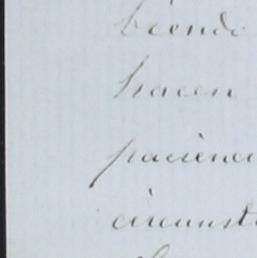 biendo
hacen
pacienci
circunst